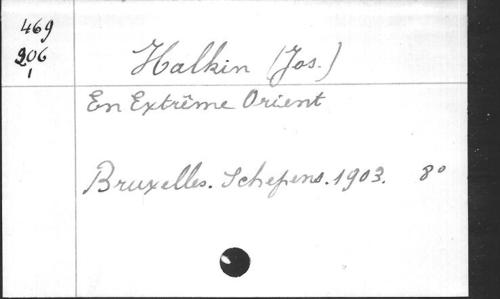 469
206
1
Halkin (Jos.)
En Extrême Orient
Bruxelles. Schepens. 1903. 8º